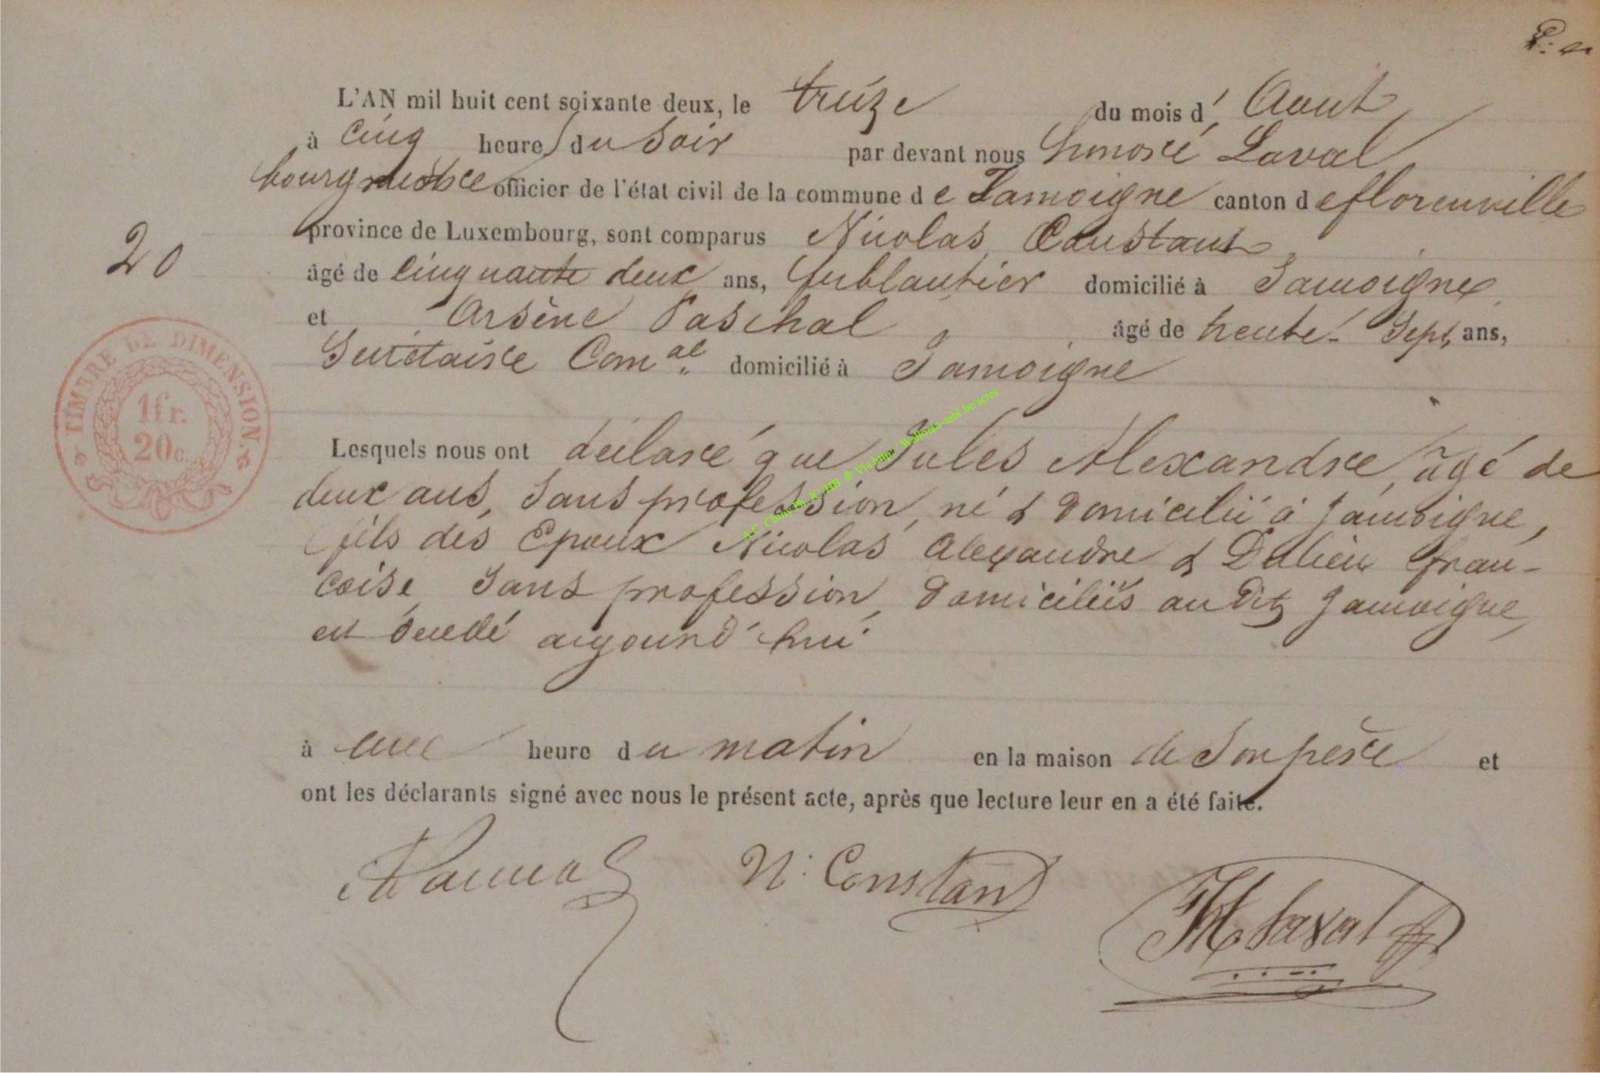 L'AN mil huit cent soixante deux, le treize du mois d' Aout
à cinq heures du soir par devant nous honoré Laval
bourgmestre officier de l'état civil de la commune de Jamoigne canton de florenville
province de Luxembourg, sont comparus Nicolas Constant
20
âgé de cinquante deux ans, ferblantier domicilié à Jamoigne
et Arsène Paschal âgé de trente-Sept ans,
Secrétaire Com.al domicilié à Jamoigne
TIMBRE DE DIMENSION
1fr.
20c.
Lesquels nous ont déclaré que Jules Alexandre, âgé de
deux ans, sans profession, né & domicilié à Jamoigne,
fils des Epoux Nicolas Alexandre & Françoise
coise, sans profession, domiciliés audit Jamoigne,
est décédé aujourd'hui
à une heure du matin en la maison de son père et
ont les déclarants signé avec nous le présent acte, après que lecture leur en a été faite.
N. Constant
H Laval